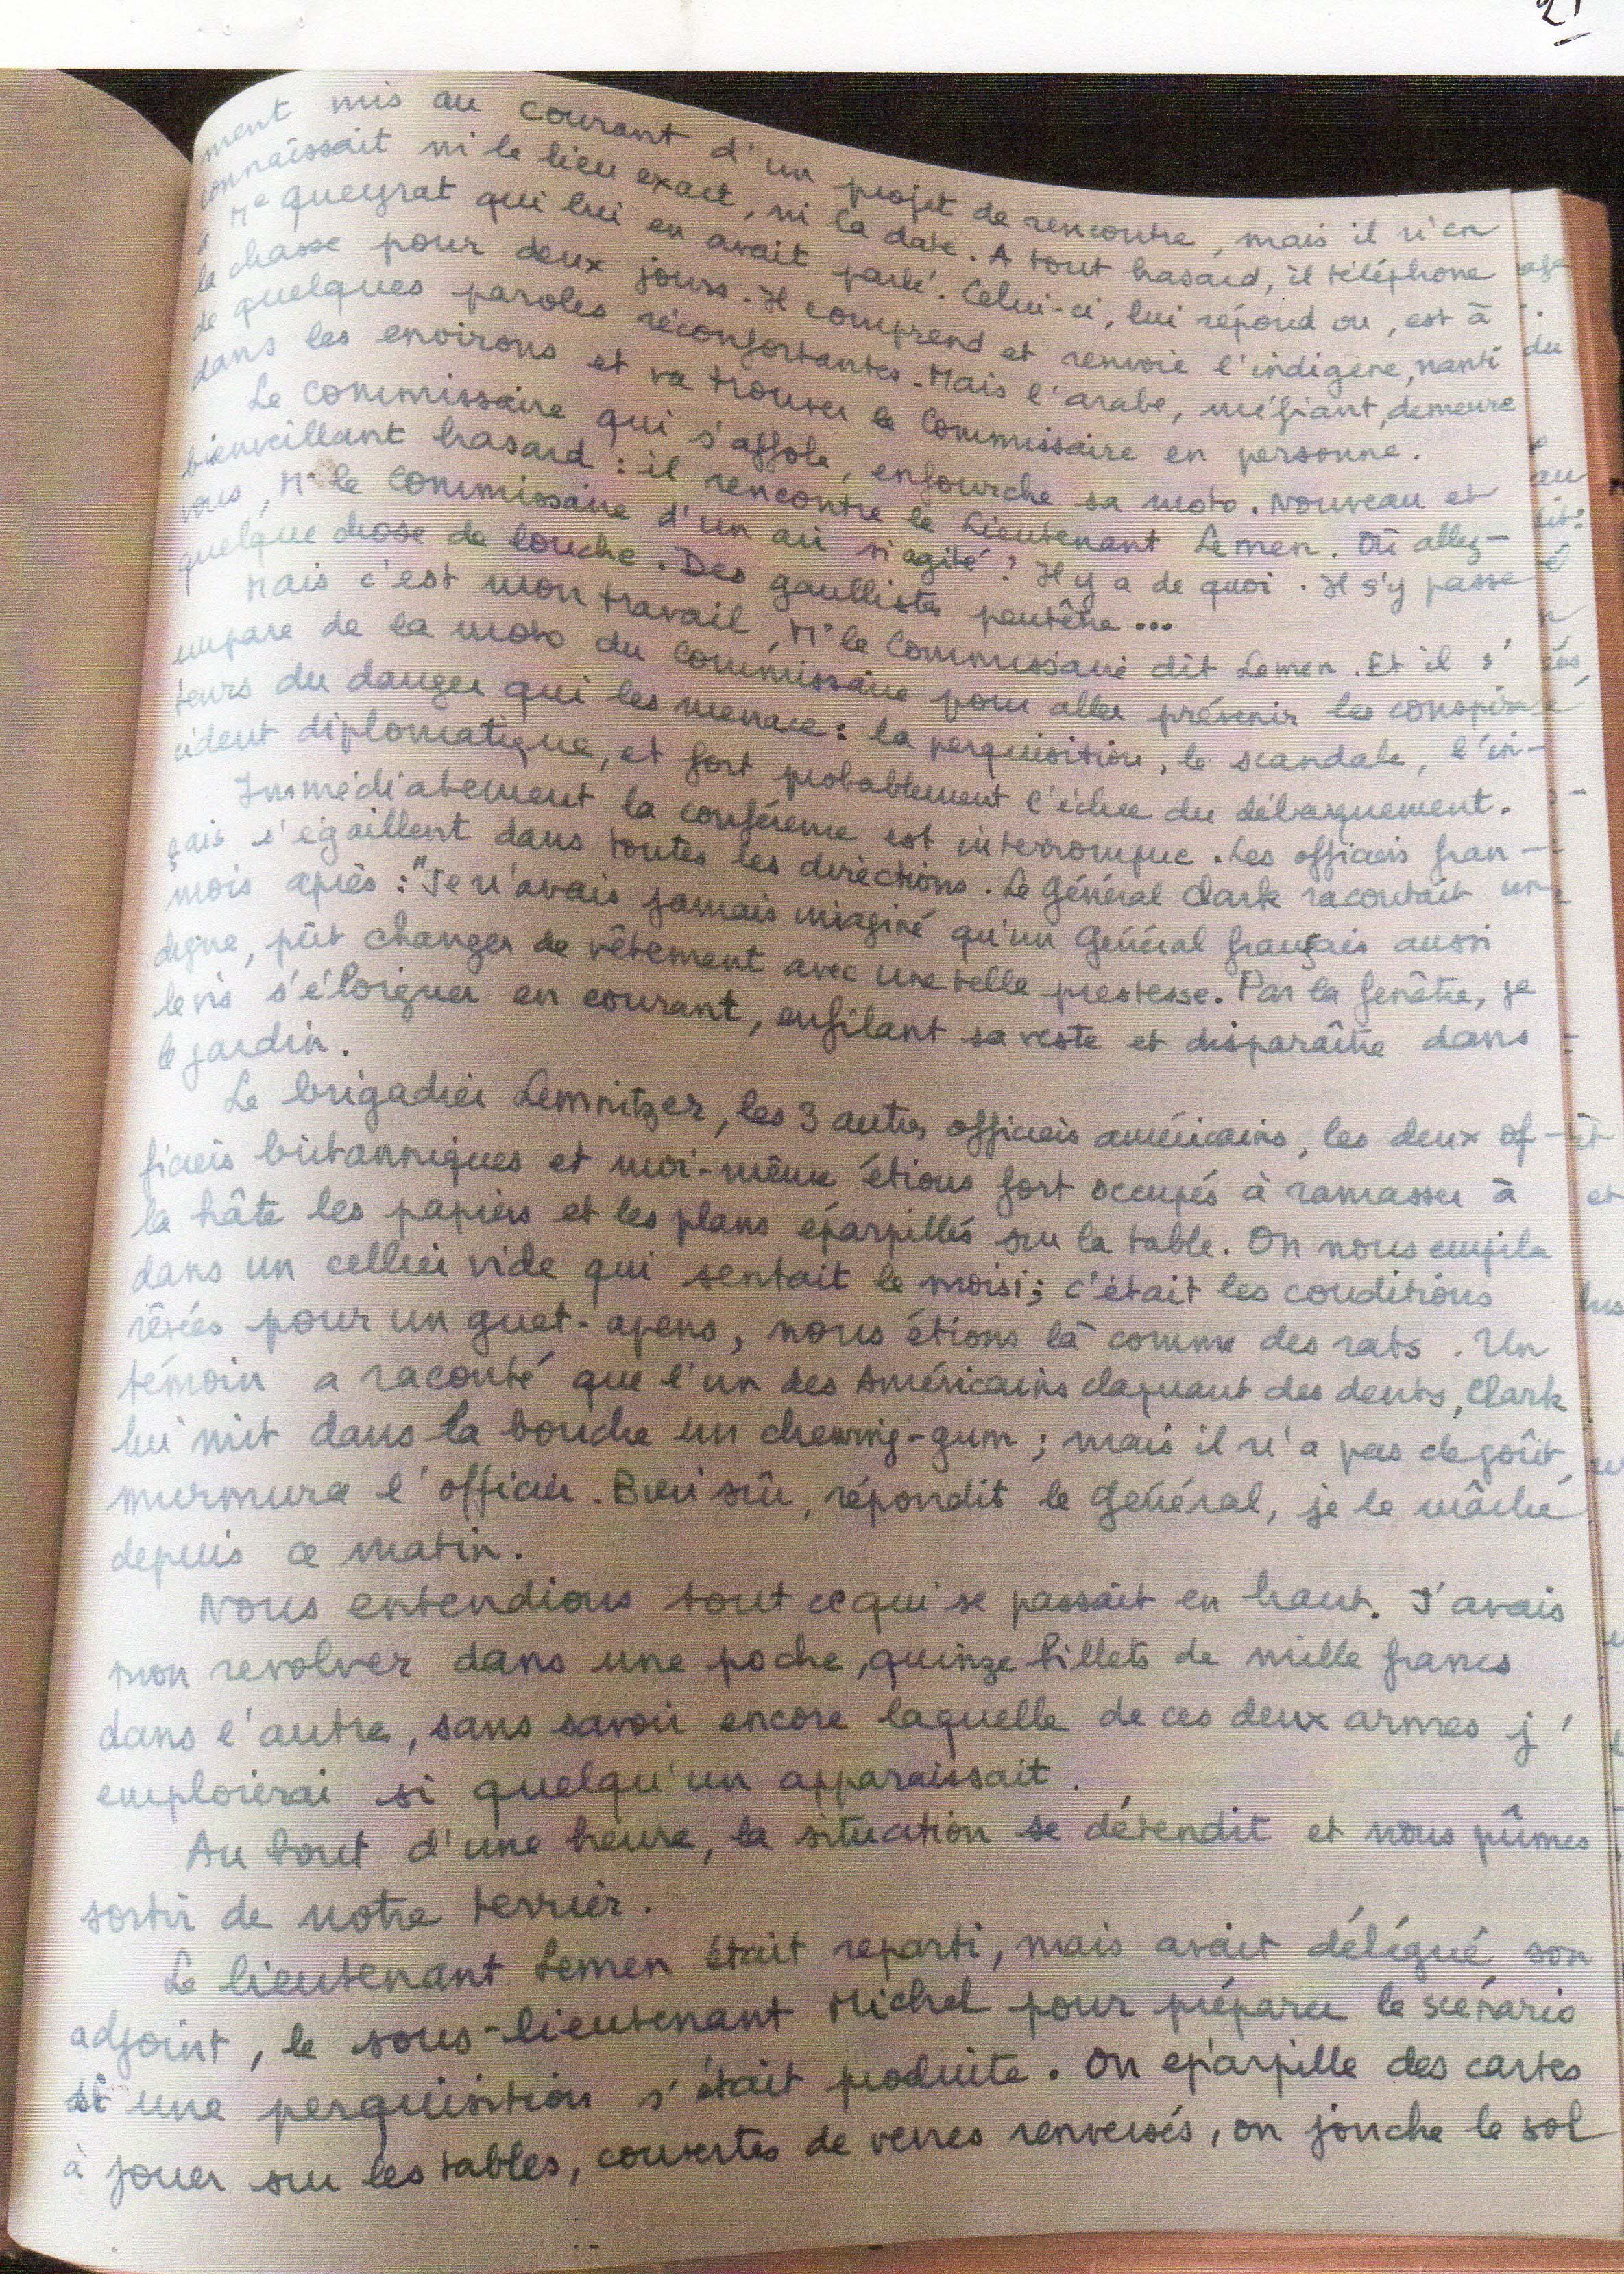 ment mis au courant d'un projet de rencontre, mais il n'en
connaissait ni le lieu exact, ni la date. A tout hasard, il téléphone
à Me Queyrat qui lui en avait parlé. Celui-ci, lui répond on, est à
la chasse pour deux jours. Il comprend et renvoie l'indigène, nanti
de quelques paroles réconfortantes. Mais l'arabe, méfiant, demeure
dans les environs et va trouver le Commissaire en personne.
Le Commissaire qui s'affole, enfourche sa moto. Nouveau et
bienveillant hasard : il rencontre le Lieutenant Lemen. Où allez-
vous, Mr le Commissaire d'un air si agité ? Il y a de quoi. Il s'y passe
quelque chose de louche. Des gaullistes peutêtre...
Mais c'est mon travail, Mr le Commissaire dit Lemen. Et il s'
empare de la moto du Commissaire pour aller prévenir les conspira-
teurs du danger qui les menace : la perquisition, le scandale, l'in-
cident diplomatique, et fort probablement l'échec du débarquement.
Immédiatement la conférence est interrompue. Les officiers fran-
çais s'égaillent dans toutes les directions. Le Général Clark racontait un
mois après : "Je n'avais jamais imaginé qu'un Général français aussi
digne, pût changer de vêtement avec une telle prestesse. Par la fenêtre, je
le vis s'éloigner en courant, enfilant sa veste et disparaître dans
le jardin.
Le brigadier Lemnitzer, les 3 autres officiers américains, les deux of-
ficiers britanniques et moi-même étions fort occupés à ramasser à
la hâte les papiers et les plans éparpillés sur la table. On nous empila
dans un cellier vide qui sentait le moisi ; c'était les conditions
rêvées pour un guet-apens, nous étions là comme des rats. Un
témoin a raconté que l'un des Américains claquant des dents, Clark
lui mit dans la bouche un chewing-gum ; mais il n'a pas de goût,
murmura l'officier. Bien sûr, répondit le Général, je le mâche
depuis ce matin.
Nous entendions tout ce qui se passait en haut. J'avais
mon revolver dans une poche, quinze billets de mille francs
dans l'autre, sans savoir encore laquelle de ces deux armes j'
emploierai si quelqu'un apparaissait.
Au bout d'une heure, la situation se détendit et nous pûmes
sortir de notre terrier.
Le lieutenant Lemen était reparti, mais avait délégué son
adjoint, le sous-lieutenant Michel pour préparer le scénario
si une perquisition s'était produite. On éparpille des cartes
à jouer sur les tables, couvertes de verres renversés, on jonche le sol